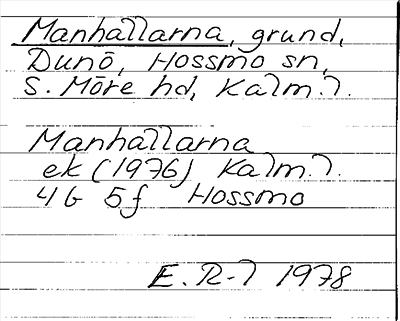 Manhallarna, grund,
Dunö, Hossmo sn,
S. Möre hd, Kalm. l.
Manhallarna
ek (1976) Kalm. l.
4G 5f Hossmo
E. R-l 1978